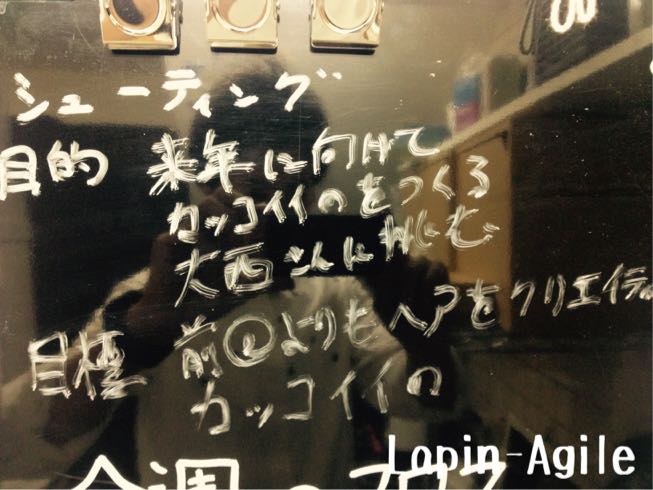 シューティング
目的 来年に向けて
カッコイイのをつくる
大西さんに挑む
目標 前回よりもヘアをクリエイティ
カッコイイの
今週のブログ
Lopin-Agile